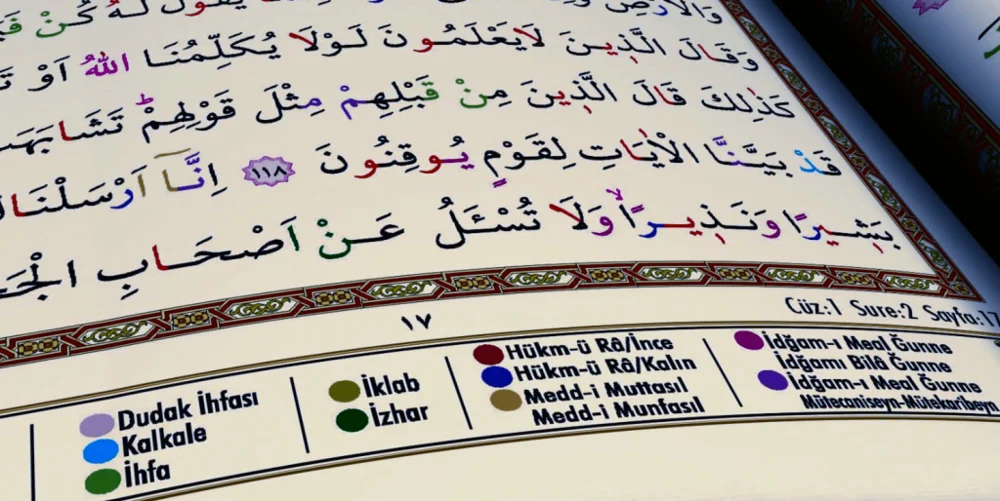 وَالْاَرْضِ
يَقُولُ لَهُ كُنْ
وَقَالَ الَّذِينَ لَايَعْلَمُونَ لَوْلَا يُكَلِّمُنَا اللهُ اَوْ
كَذٰلِكَ قَالَ الَّذِينَ مِنْ قَبْلِهِمْ مِثْلَ قَوْلِهِمْ تَشَابَهَتْ
قَدْ بَيَّنَّا الْاٰيَاتِ لِقَوْمٍ يُوقِنُونَ ١١٨ اِنَّٓا اَرْسَلْنَاكَ
بَشِيرًا وَنَذِيرًاۙ وَلَا تُسْـَٔلُ عَنْ اَصْحَابِ
١٧
Cüz:1 Sure:2 Sayfa:17
Dudak İhfası
Kalkale
İhfa
İklab
İzhar
Hükm-ü Râ/İnce
Hükm-ü Râ/Kalın
Medd-i Muttasıl
Medd-i Munfasıl
İdğam-ı Meal Ğunne
İdğamı Bilâ Ğunne
İdğam-ı Meal Ğunne
Mütecaniseyn-Mütekaribeyn